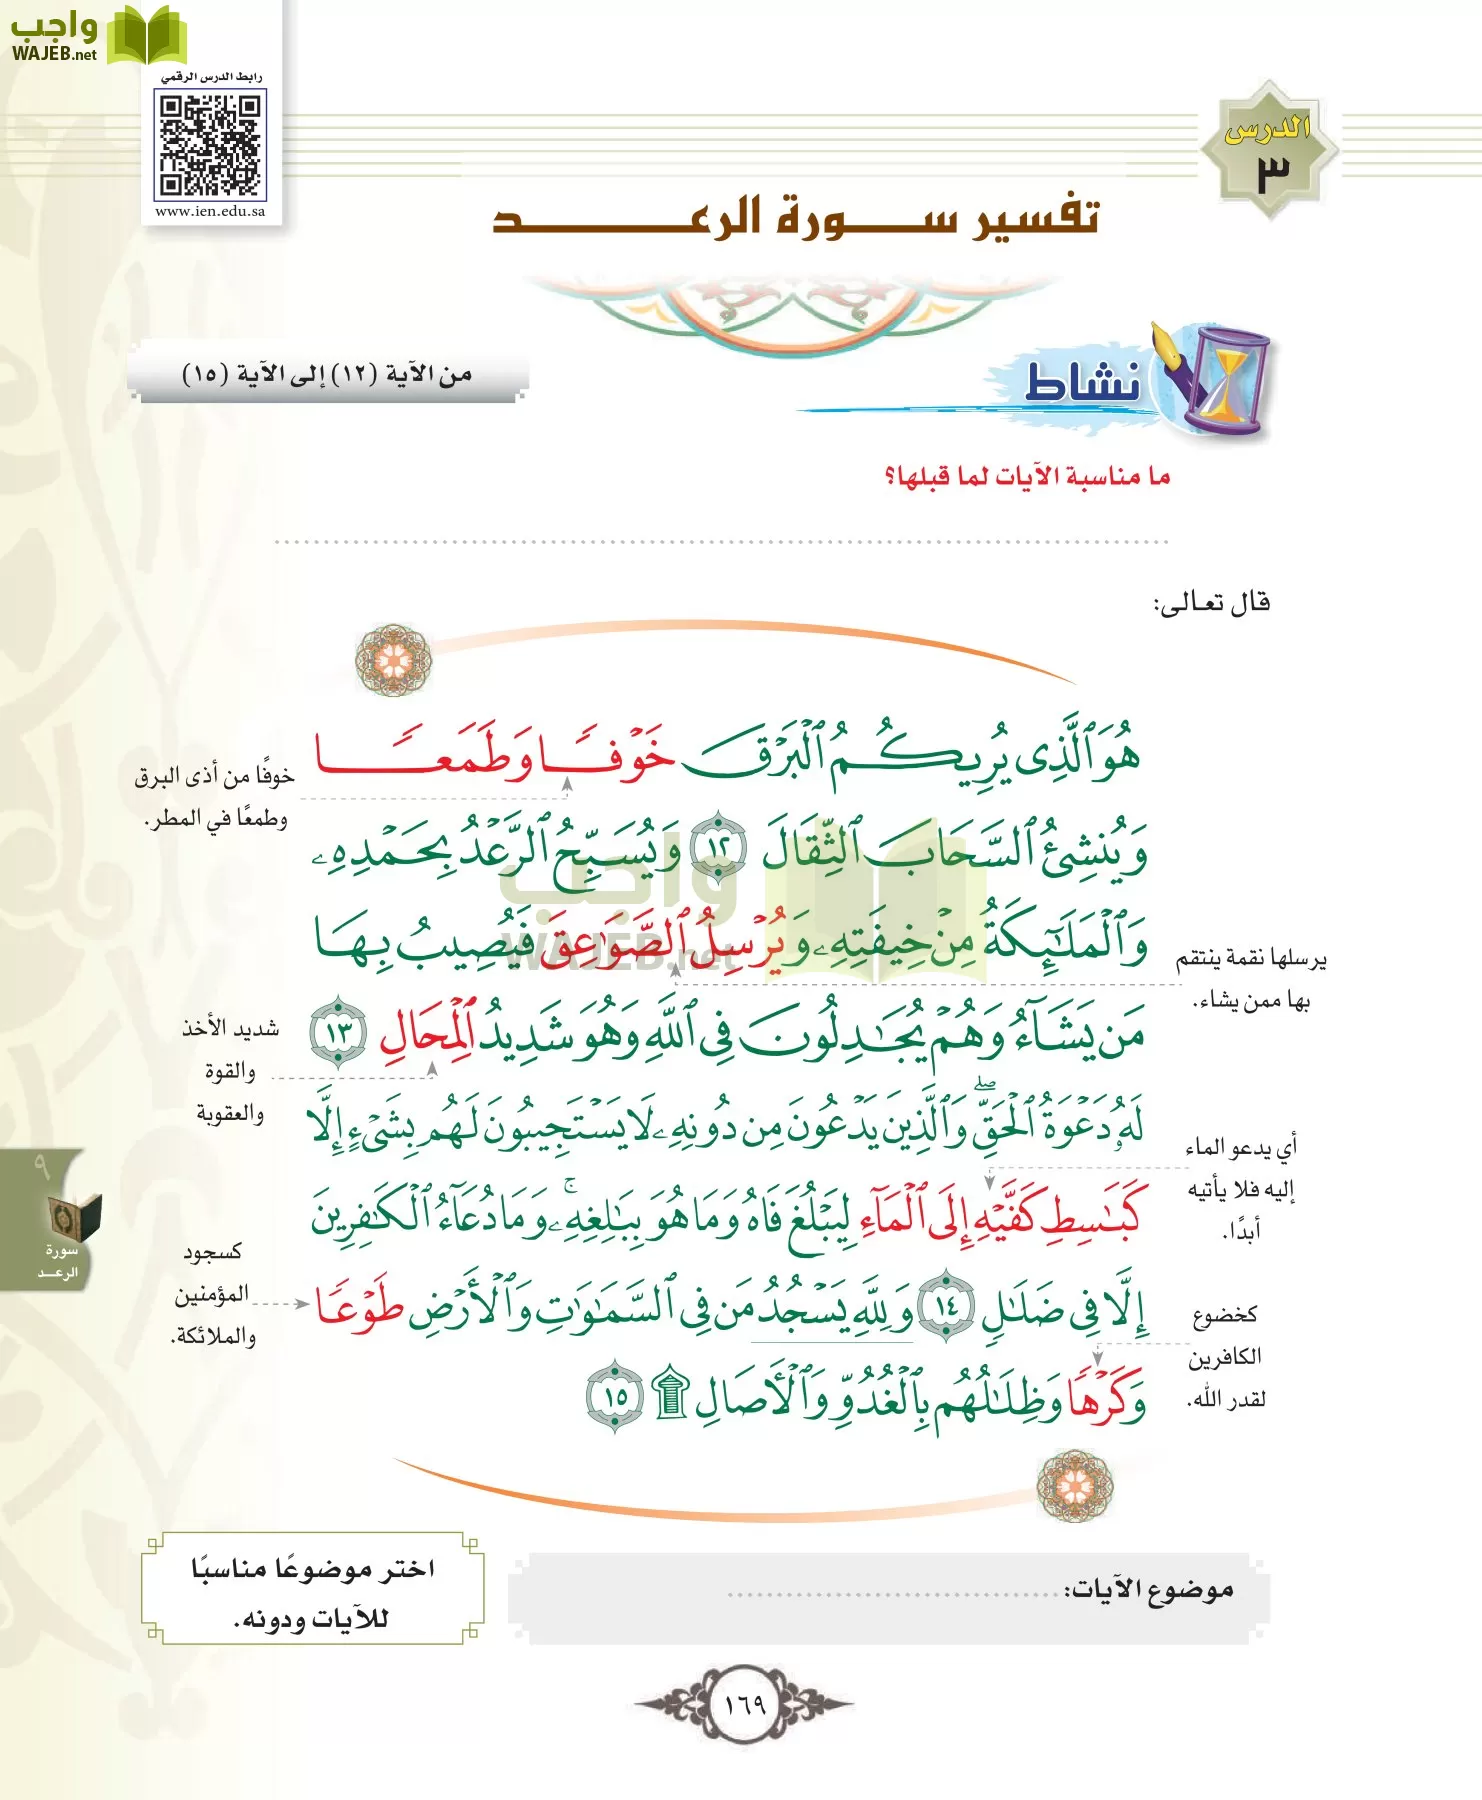 واجب
WAJEB.net
رابط الدرس الرقمي
www.ien.edu.sa
الدرس
٣
تفسير سورة الرعد
من الآية (١٢) إلى الآية (١٥)
نشاط
ما مناسبة الآيات لما قبلها؟
قال تعالى:
هُوَ ٱلَّذِى يُرِيكُمُ ٱلْبَرْقَ خَوْفًا وَطَمَعًا
وَيُنشِئُ ٱلسَّحَابَ ٱلثِّقَالَ ١٢ وَيُسَبِّحُ ٱلرَّعْدُ بِحَمْدِهِۦ
وَٱلْمَلَٰٓئِكَةُ مِنْ خِيفَتِهِۦ وَيُرْسِلُ ٱلصَّوَٰعِقَ فَيُصِيبُ بِهَا
مَن يَشَآءُ وَهُمْ يُجَٰدِلُونَ فِى ٱللَّهِ وَهُوَ شَدِيدُ ٱلْمِحَالِ ١٣
لَهُۥ دَعْوَةُ ٱلْحَقِّ ۖ وَٱلَّذِينَ يَدْعُونَ مِن دُونِهِۦ لَا يَسْتَجِيبُونَ لَهُم بِشَىْءٍ إِلَّا
كَبَٰسِطِ كَفَّيْهِ إِلَى ٱلْمَآءِ لِيَبْلُغَ فَاهُ وَمَا هُوَ بِبَٰلِغِهِۦ ۚ وَمَا دُعَآءُ ٱلْكَٰفِرِينَ
إِلَّا فِى ضَلَٰلٍ ١٤ وَلِلَّهِ يَسْجُدُ مَن فِى ٱلسَّمَٰوَٰتِ وَٱلْأَرْضِ طَوْعًا
وَكَرْهًا وَظِلَٰلُهُم بِٱلْغُدُوِّ وَٱلْءَاصَالِ ۩ ١٥
خوفًا من أذى البرق
وطمعًا في المطر.
يرسلها نقمة ينتقم
بها ممن يشاء.
شديد الأخذ
والقوة
والعقوبة
أي يدعو الماء
إليه فلا يأتيه
أبدًا.
كسجود
المؤمنين
والملائكة.
كخضوع
الكافرين
لقدر الله.
واجب
WAJEB.net
٩
سورة
الرعد
موضوع الآيات:
اختر موضوعًا مناسبًا
للآيات ودونه.
١٦٩